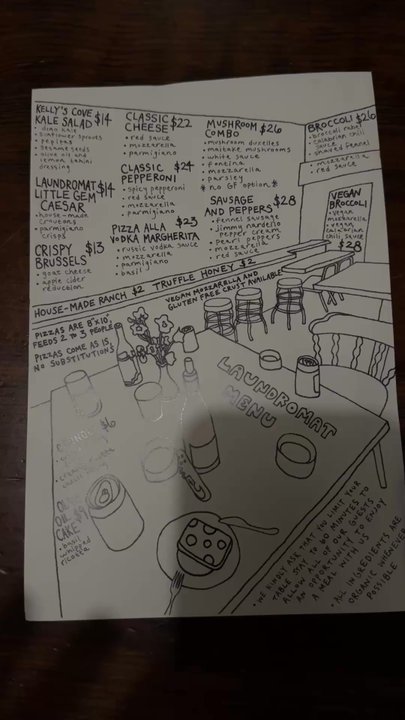 KELLY'S COVE
KALE SALAD $14
• dino kale
• sunflower sprouts
• pepitas
• sesame seeds
• olive oil and
lemon tahini
dressing
LAUNDROMAT $14
LITTLE GEM
CAESAR
• house-made
croutons
• parmigiano
crisps
CRISPY $13
BRUSSELS
• goat cheese
• apple cider
reduction
CLASSIC
CHEESE $22
• red sauce
• mozzarella
• parmigiano
CLASSIC $24
PEPPERONI
• spicy pepperoni
• red sauce
• mozzarella
• parmigiano
PIZZA ALLA $23
VODKA MARGHERITA
• rustic vodka sauce
• mozzarella
• parmigiano
• basil
MUSHROOM $26
COMBO
• mushroom duxelles
• maitake mushrooms
• white sauce
• fontina
• mozzarella
• parsley
* no GF option *
SAUSAGE
AND PEPPERS $28
• fennel sausage
• jimmy nardello
pepper cream
• pearl peppers
• mozzarella
• red sauce
BROCCOLI $26
• broccoli
• calabrian chili
sauce
• smoked fennel
• mozzarella
• red sauce
VEGAN
BROCCOLI
• vegan
mozzarella
• vegan
calabrian
chili sauce
$28
HOUSE-MADE RANCH $2 TRUFFLE HONEY $2
VEGAN MOZZARELLA AND
GLUTEN FREE CRUST AVAILABLE
PIZZAS ARE 8"x10"
FEEDS 2 TO 3 PEOPLE
PIZZAS COME AS IS,
NO SUBSTITUTIONS
LAUNDROMAT
MENU
$6
OLIVE
OIL $9
CAKE
• basil
whipped
ricotta
• WE KINDLY ASK THAT YOU LIMIT YOUR
TABLE STAY TO 90 MINUTES TO
ALLOW ALL OF OUR GUESTS
AN OPPORTUNITY TO ENJOY
A MEAL WITH US
• ALL INGREDIENTS ARE
ORGANIC WHENEVER
POSSIBLE